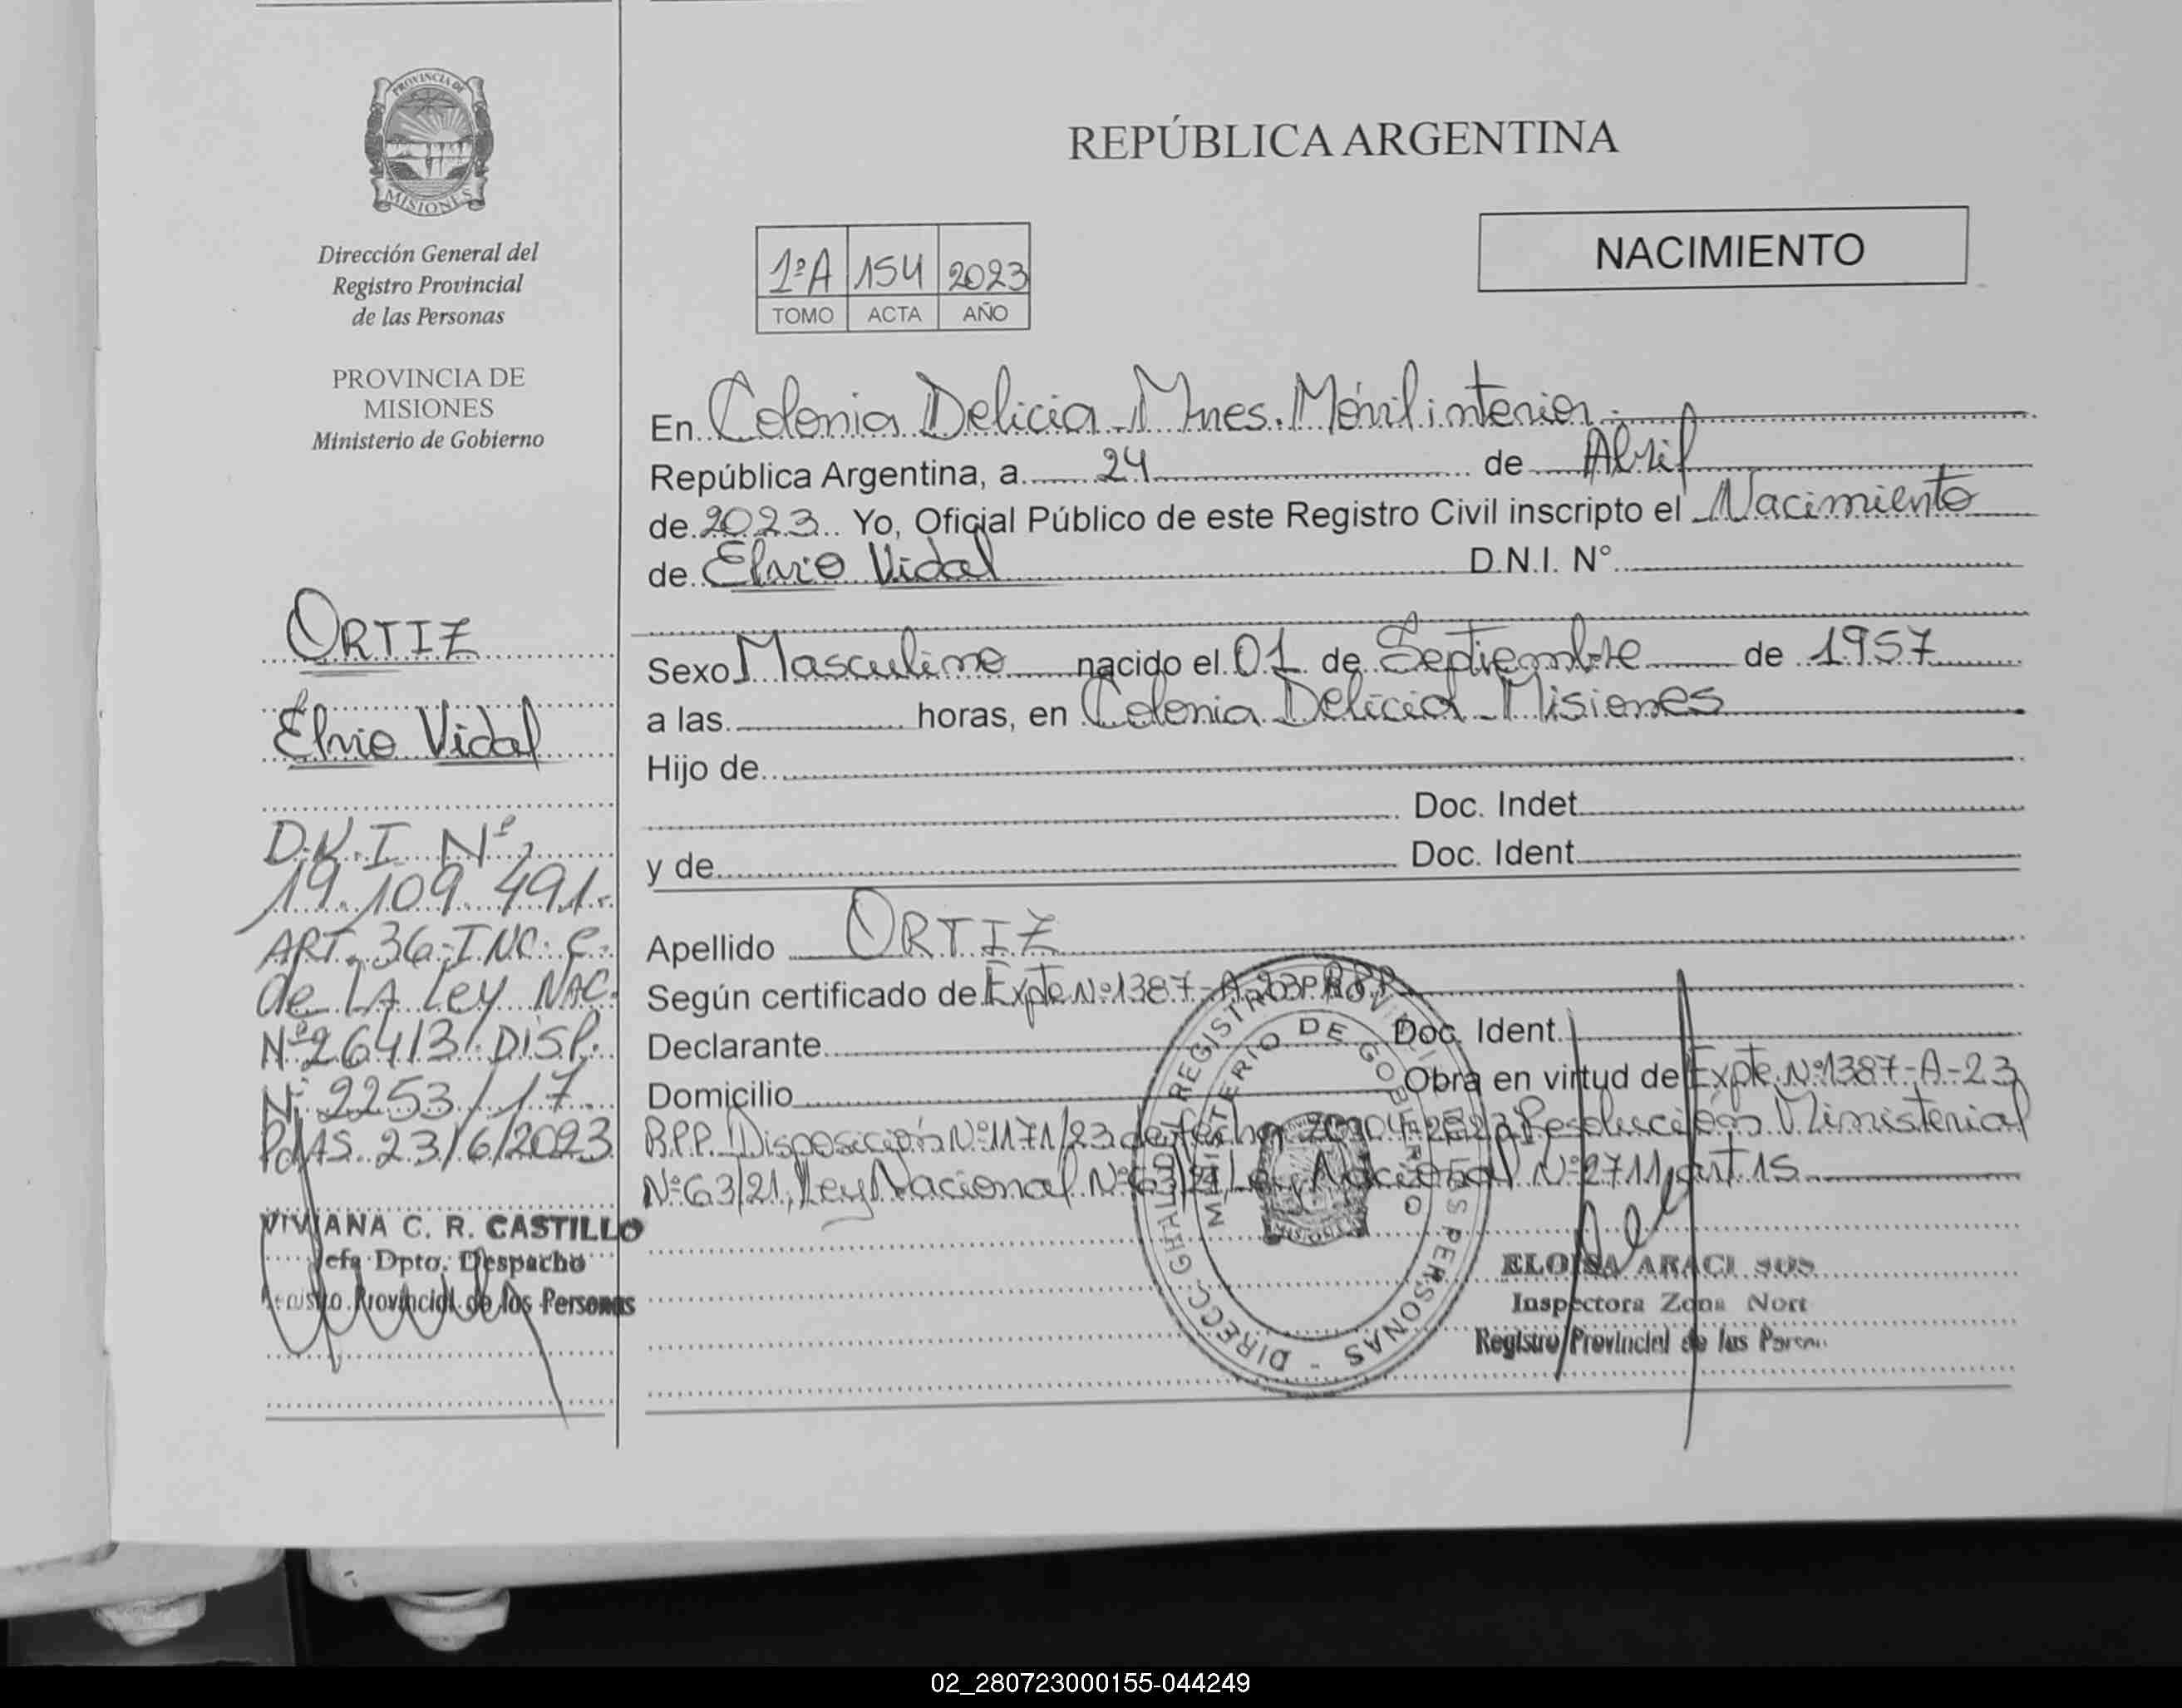 PROVINCIA DE
MISIONES
Dirección General del
Registro Provincial
de las Personas
PROVINCIA DE
MISIONES
Ministerio de Gobierno
ORTIZ
Elvio Vidal
D.N.I. Nº
19.109.491.-
ART. 36-INC: C.
de LA Ley NAC.
Nº26413/. DISP.
Nº 2253/17.
PdAS. 23/6/2023
VIVIANA C. R. CASTILLO
Jefa Dpto. Despacho
Registro Provincial de las Personas
REPÚBLICA ARGENTINA
NACIMIENTO
1ºA 154 2023
TOMO ACTA AÑO
En Colonia Delicia - Mnes. Móvil interior.
República Argentina, a 24 de Abril
de 2023 Yo, Oficial Público de este Registro Civil inscripto el Nacimiento
de Elvio Vidal D.N.I. N°
Sexo Masculino nacido el 01 de Septiembre de 1957
a las horas, en Colonia Delicia - Misiones
Hijo de
Doc. Indet.
y de Doc. Ident.
Apellido ORTIZ
Según certificado de Expte Nº1387-A-23 RPP
Declarante Doc. Ident.
Domicilio Obra en virtud de Expte. Nº1387-A-23
R.P.P. Disposición Nº1171/23 de fecha Resolución Ministerial
Nº63/21, Ley Nacional Nº63/21 Ley Nacional Nº2711, art 15
DIRECC. GRAL. DEL REGISTRO PROVINCIAL DE LAS PERSONAS -
MINISTERIO DE GOBIERNO
ELOISA ARACI
Inspectora Zona Nort
Registro Provincial de las Person
02_280723000155-044249